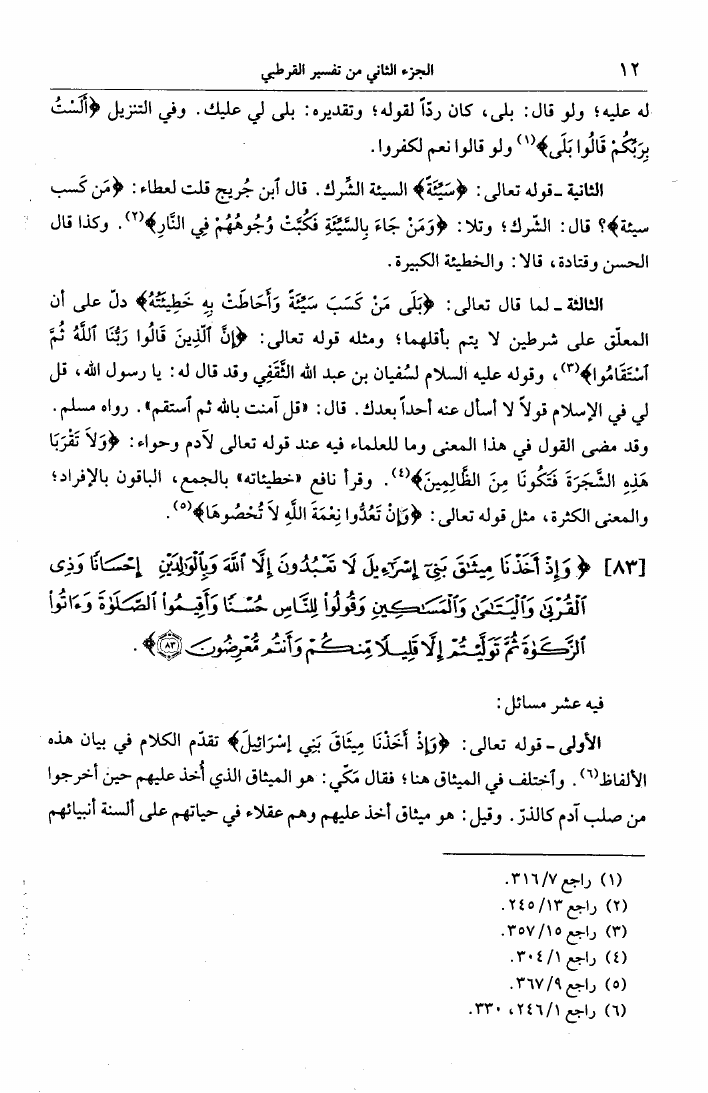 ١٢
الجزء الثاني من تفسير القرطبي
له عليه؛ ولو قال: بلى، كان ردّاً لقوله؛ وتقديره: بلى لي عليك. وفي التنزيل ﴿أَلَسْتُ
بِرَبِّكُمْ قَالُوا بَلَى﴾(١) ولو قالوا نعم لكفروا.
الثانية - قوله تعالى: ﴿سَيِّئَةً﴾ السيئة الشِّرك. قال ٱبن جُريج قلت لعطاء: ﴿مَن كَسب
سيئة﴾؟ قال: الشّرك؛ وتلا: ﴿وَمَنْ جَاءَ بِالسَّيِّئَةِ فَكُبَّتْ وُجُوهُهُمْ فِي النَّارِ﴾(٢). وكذا قال
الحسن وقتادة، قالا: والخطيئة الكبيرة.
الثالثة - لما قال تعالى: ﴿بَلَى مَنْ كَسَبَ سَيِّئَةً وَأَحَاطَتْ بِهِ خَطِيئَتُهُ﴾ دلّ على أن
المعلّق على شرطين لا يتم بأقلهما؛ ومثله قوله تعالى: ﴿إِنَّ ٱلَّذِينَ قَالُوا رَبُّنَا ٱللَّهُ ثُمَّ
ٱسْتَقَامُوا﴾(٣)، وقوله عليه السلام لسُفيان بن عبد الله الثَّقَفِي وقد قال له: يا رسول الله، قل
لي في الإسلام قولاً لا أسأل عنه أحداً بعدك. قال: «قل آمنت بالله ثم ٱستقم». رواه مسلم.
وقد مضى القول في هذا المعنى وما للعلماء فيه عند قوله تعالى لآدم وحواء: ﴿وَلاَ تَقْرَبَا
هَذِهِ الشَّجَرَةَ فَتَكُونَا مِنَ الظَّالِمِينَ﴾(٤). وقرأ نافع «خطيئاته» بالجمع، الباقون بالإفراد؛
والمعنى الكثرة، مثل قوله تعالى: ﴿وَإِنْ تَعُدُّوا نِعْمَةَ اللَّهِ لاَ تُحْصُوهَا﴾(٥).
[٨٣] ﴿ وَإِذْ أَخَذْنَا مِيثَٰقَ بَنِىٓ إِسْرَٰٓءِيلَ لَا تَعْبُدُونَ إِلَّا ٱللَّهَ وَبِٱلْوَٰلِدَيْنِ إِحْسَانًا وَذِى
ٱلْقُرْبَىٰ وَٱلْيَتَٰمَىٰ وَٱلْمَسَٰكِينِ وَقُولُوا۟ لِلنَّاسِ حُسْنًا وَأَقِيمُوا۟ ٱلصَّلَوٰةَ وَءَاتُوا۟
ٱلزَّكَوٰةَ ثُمَّ تَوَلَّيْتُمْ إِلَّا قَلِيلًا مِّنكُمْ وَأَنتُم مُّعْرِضُونَ ٨٣﴾.
فيه عشر مسائل:
الأولى - قوله تعالى: ﴿وَإِذْ أَخَذْنَا مِيثَاقَ بَنِي إسْرَائِيلَ﴾ تقدّم الكلام في بيان هذه
الألفاظ(٦). وٱختلف في الميثاق هنا؛ فقال مَكّي: هو الميثاق الذي أُخذ عليهم حين أخرجوا
من صلب آدم كالذرّ. وقيل: هو ميثاق أخذ عليهم وهم عقلاء في حياتهم على ألسنة أنبيائهم
(١) راجع ٣١٦/٧.
(٢) راجع ٢٤٥/١٣.
(٣) راجع ٣٥٧/١٥.
(٤) راجع ٣٠٤/١.
(٥) راجع ٣٦٧/٩.
(٦) راجع ٢٤٦/١، ٣٣٠.